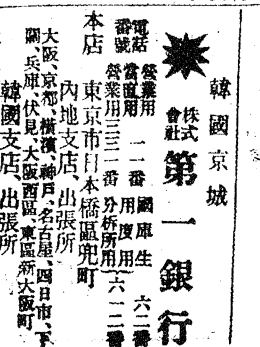 韓國京城
株式會社 第一銀行
電話番號
營業用 一一番 國庫生 六二番
當直用 用度用
營業用 三三一番 分析所用 六一二番
本店 東京市日本橋區兜町
內地支店、出張所
大阪、京都、橫濱、神戶、名古屋、四日市、下
關、兵庫、伏見、大阪西區、東區、新大阪町
韓國支店、出張所